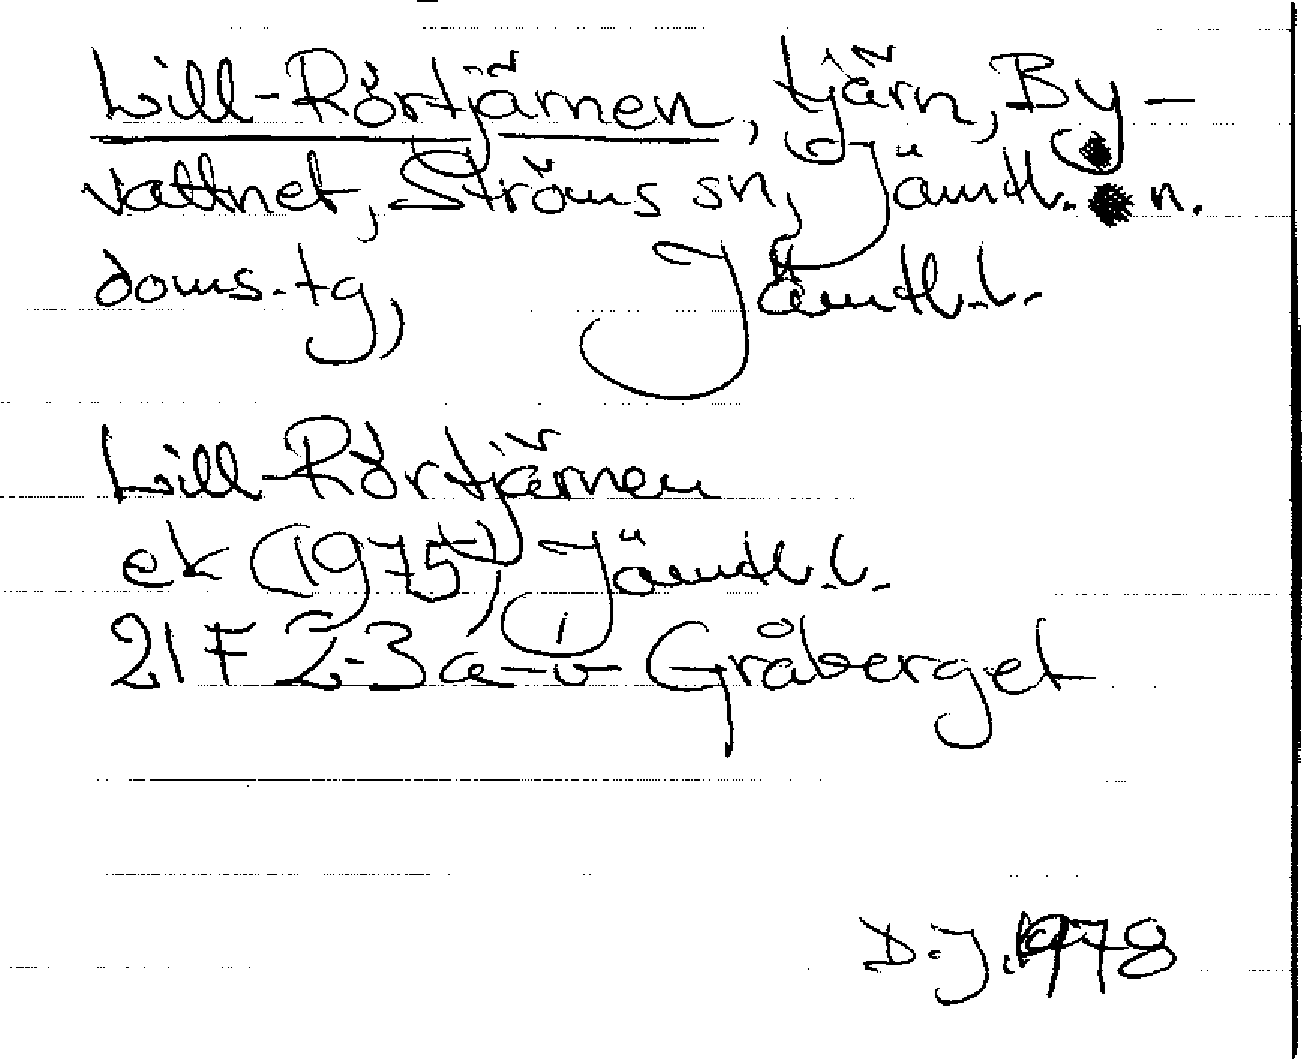 Lill-Rörtjärnen, tjärn, By-
vattnet, Ströms sn, Jämtl. n.
doms. tg, Jämtl. l.
Lill-Rörtjärnen
ek (1975), Jämtl. l.
21 F 2-3 a-b Gråberget
D.J. 1978